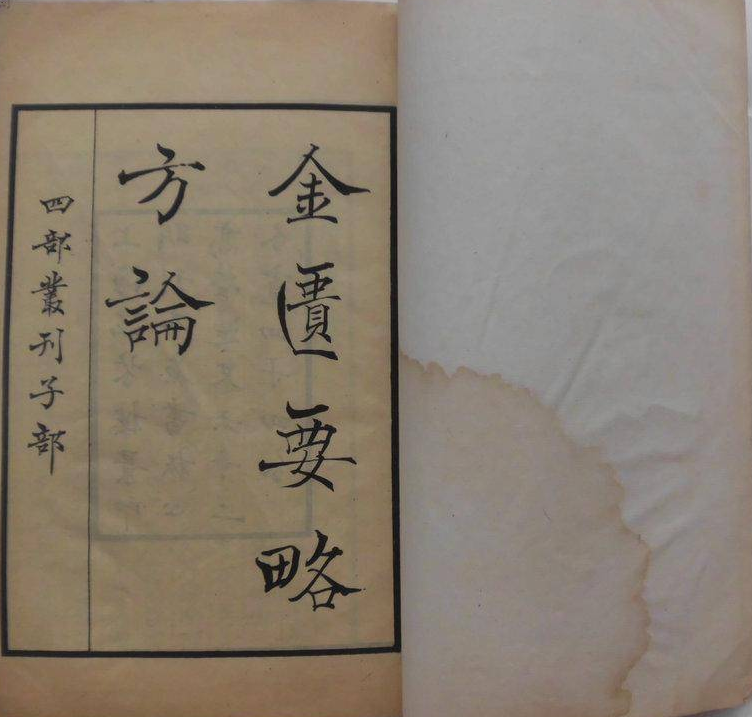 金匱要略
方論
四部叢刊子部